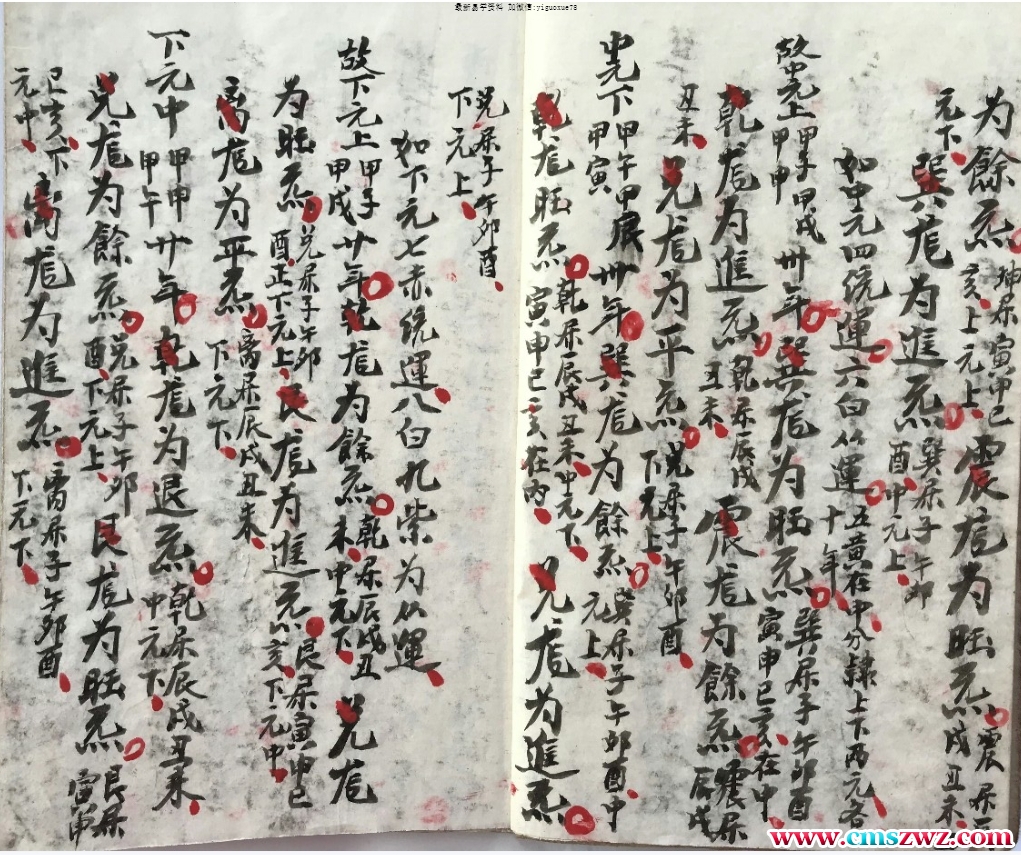 最新易学资料 加微信:yiguoxue78
为餘炁 坤屬寅申巳
亥上元上 震庒为旺炁 震屬辰戌丑未
元下 巽庒为進炁 巽屬子午卯酉中元上
如中元四綂運六白从運 五黄在中分隸上下两元各十年
故中元上 甲子甲戌甲申 卅年巽庒为旺炁 巽屬子午卯酉寅申巳亥在中
乾庒为進炁 乾屬辰戌丑未 震庒为餘炁 震屬辰戌
丑未 兑庒为平炁 兑屬子午卯酉下元上
中元下 甲午甲辰甲寅 卅年巽庒为餘炁 巽屬子午卯酉中元上
乾庒旺炁 乾屬辰戌丑未中元下寅申巳亥在内 兑庒为進炁
兑屬子午卯酉下元上
如下元七赤綂運八白九紫为从運
故下元上 甲子甲戌 廿年乾庒为餘炁 乾屬辰戌丑未中元下 兑庒
为旺炁 兑屬子午卯酉正下元上 艮庒为進炁 艮屬寅申巳亥下元中
离庒为平炁 离屬辰戌丑未下元下
下元中 甲申甲午 廿年乾庒为退炁 乾屬辰戌丑未中元下
兑庒为餘炁 兑屬子午卯酉下元上 艮庒为旺炁 艮屬寅申
巳亥下元中 离庒为進炁 离屬子午卯酉下元下
www.cmszwz.com